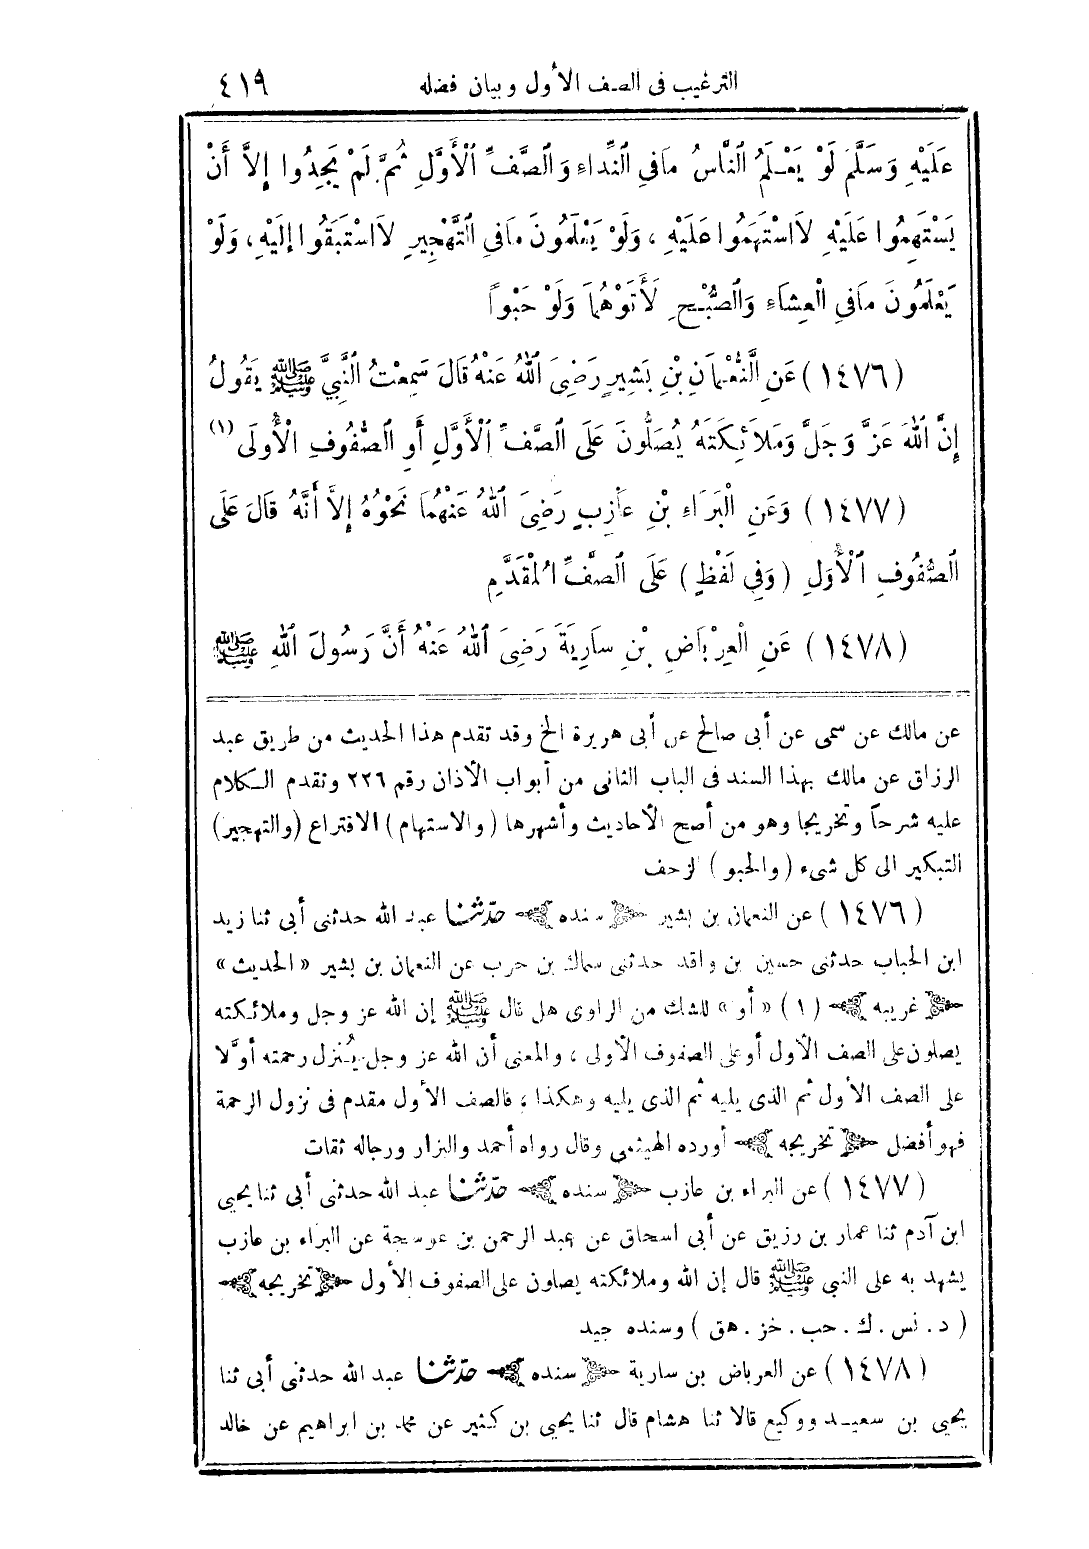 الترغيب فى الصف الأول وبيان فضله ٤١٩
عَلَيْهِ وَسَلَّمَ لَوْ يَعْلَمُ النَّاسُ مَافِي النِّدَاءِ وَالصَّفِّ الْأَوَّلِ ثُمَّ لَمْ يَجِدُوا إِلاَّ أَنْ
يَسْتَهِمُوا عَلَيْهِ لَاسْتَهَمُوا عَلَيْهِ ، وَلَوْ يَعْلَمُونَ مَافِي التَّهْجِيرِ لَاسْتَبَقُوا إِلَيْهِ، وَلَوْ
يَعْلَمُونَ مَافِي الْعِشَاءِ وَالصُّبْحِ لَأَتَوْهُمَا وَلَوْ حَبْواً
(١٤٧٦) عَنِ النُّعْمَانِ بْنِ بَشِيرٍ رَضِىَ اللهُ عَنْهُ قَالَ سَمِعْتُ النَّبِيَّ ﷺ يَقُولُ
إِنَّ اللهَ عَزَّ وَجَلَّ وَمَلَائِكَتَهُ يُصَلُّونَ عَلَى الصَّفِّ الْأَوَّلِ أَوِ الصُّفُوفِ الْأُولَى (١)
(١٤٧٧) وَعَنِ الْبَرَاءِ بْنِ عَازِبٍ رَضِىَ اللهُ عَنْهُمَا نَحْوُهُ إِلاَّ أَنَّهُ قَالَ عَلَى
الصُّفُوفِ الْأُوَلِ (وَفِي لَفْظٍ) عَلَى الصَّفِّ الْمُقَدَّمِ
(١٤٧٨) عَنِ الْعِرْبَاضِ بْنِ سَارِيَةَ رَضِىَ اللهُ عَنْهُ أَنَّ رَسُولَ اللهِ ﷺ
عن مالك عن سمى عن أبى صالح عن أبى هريرة الخ وقد تقدم هذا الحديث من طريق عبد
الرزاق عن مالك بهذا السند فى الباب الثانى من أبواب الأذان رقم ٢٢٦ وتقدم الكلام
عليه شرحاً وتخريجا وهو من أصح الأحاديث وأشهرها (والاستهام) الاقتراع (والتهجير)
التبكير الى كل شىء (والحبو) الزحف
(١٤٧٦) عن النعمان بن بشير ﴿سنده﴾ حدّثنا عبد الله حدثنى أبى ثنا زيد
ابن الحباب حدثنى حسين بن واقد حدثنى سماك بن حرب عن النعمان بن بشير «الحديث»
﴿غريبه﴾ (١) «أو» للشك من الراوى هل قال ﷺ إن الله عز وجل وملائكته
يصلون على الصف الأول أو على الصفوف الأولى ، والمعنى أن الله عز وجل يُنزل رحمته أوَّلا
على الصف الأول ثم الذى يليه ثم الذى يليه وهكذا ، فالصف الأول مقدم فى نزول الرحمة
فهو أفضل ﴿تخريجه﴾ أورده الهيثمى وقال رواه أحمد والبزار ورجاله ثقات
(١٤٧٧) عن البراء بن عازب ﴿سنده﴾ حدّثنا عبد الله حدثنى أبى ثنا يحيى
ابن آدم ثنا عمار بن رزيق عن أبى اسحاق عن عبد الرحمن بن عوسجة عن البراء بن عازب
يشهد به على النبي ﷺ قال إن الله وملائكته يصلون على الصفوف الأول ﴿تخريجه﴾
(د . نس . ك . حب . خز . هق) وسنده جيد
(١٤٧٨) عن العرباض بن سارية ﴿سنده﴾ حدّثنا عبد الله حدثنى أبى ثنا
يحيى بن سعيد ووكيع قالا ثنا هشام قال ثنا يحيى بن كثير عن محمد بن ابراهيم عن خالد